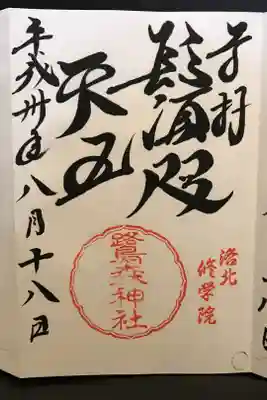 奉拝
洛北
修学院
鬚咫
天王
鷺森神社
平成卅年八月十八日